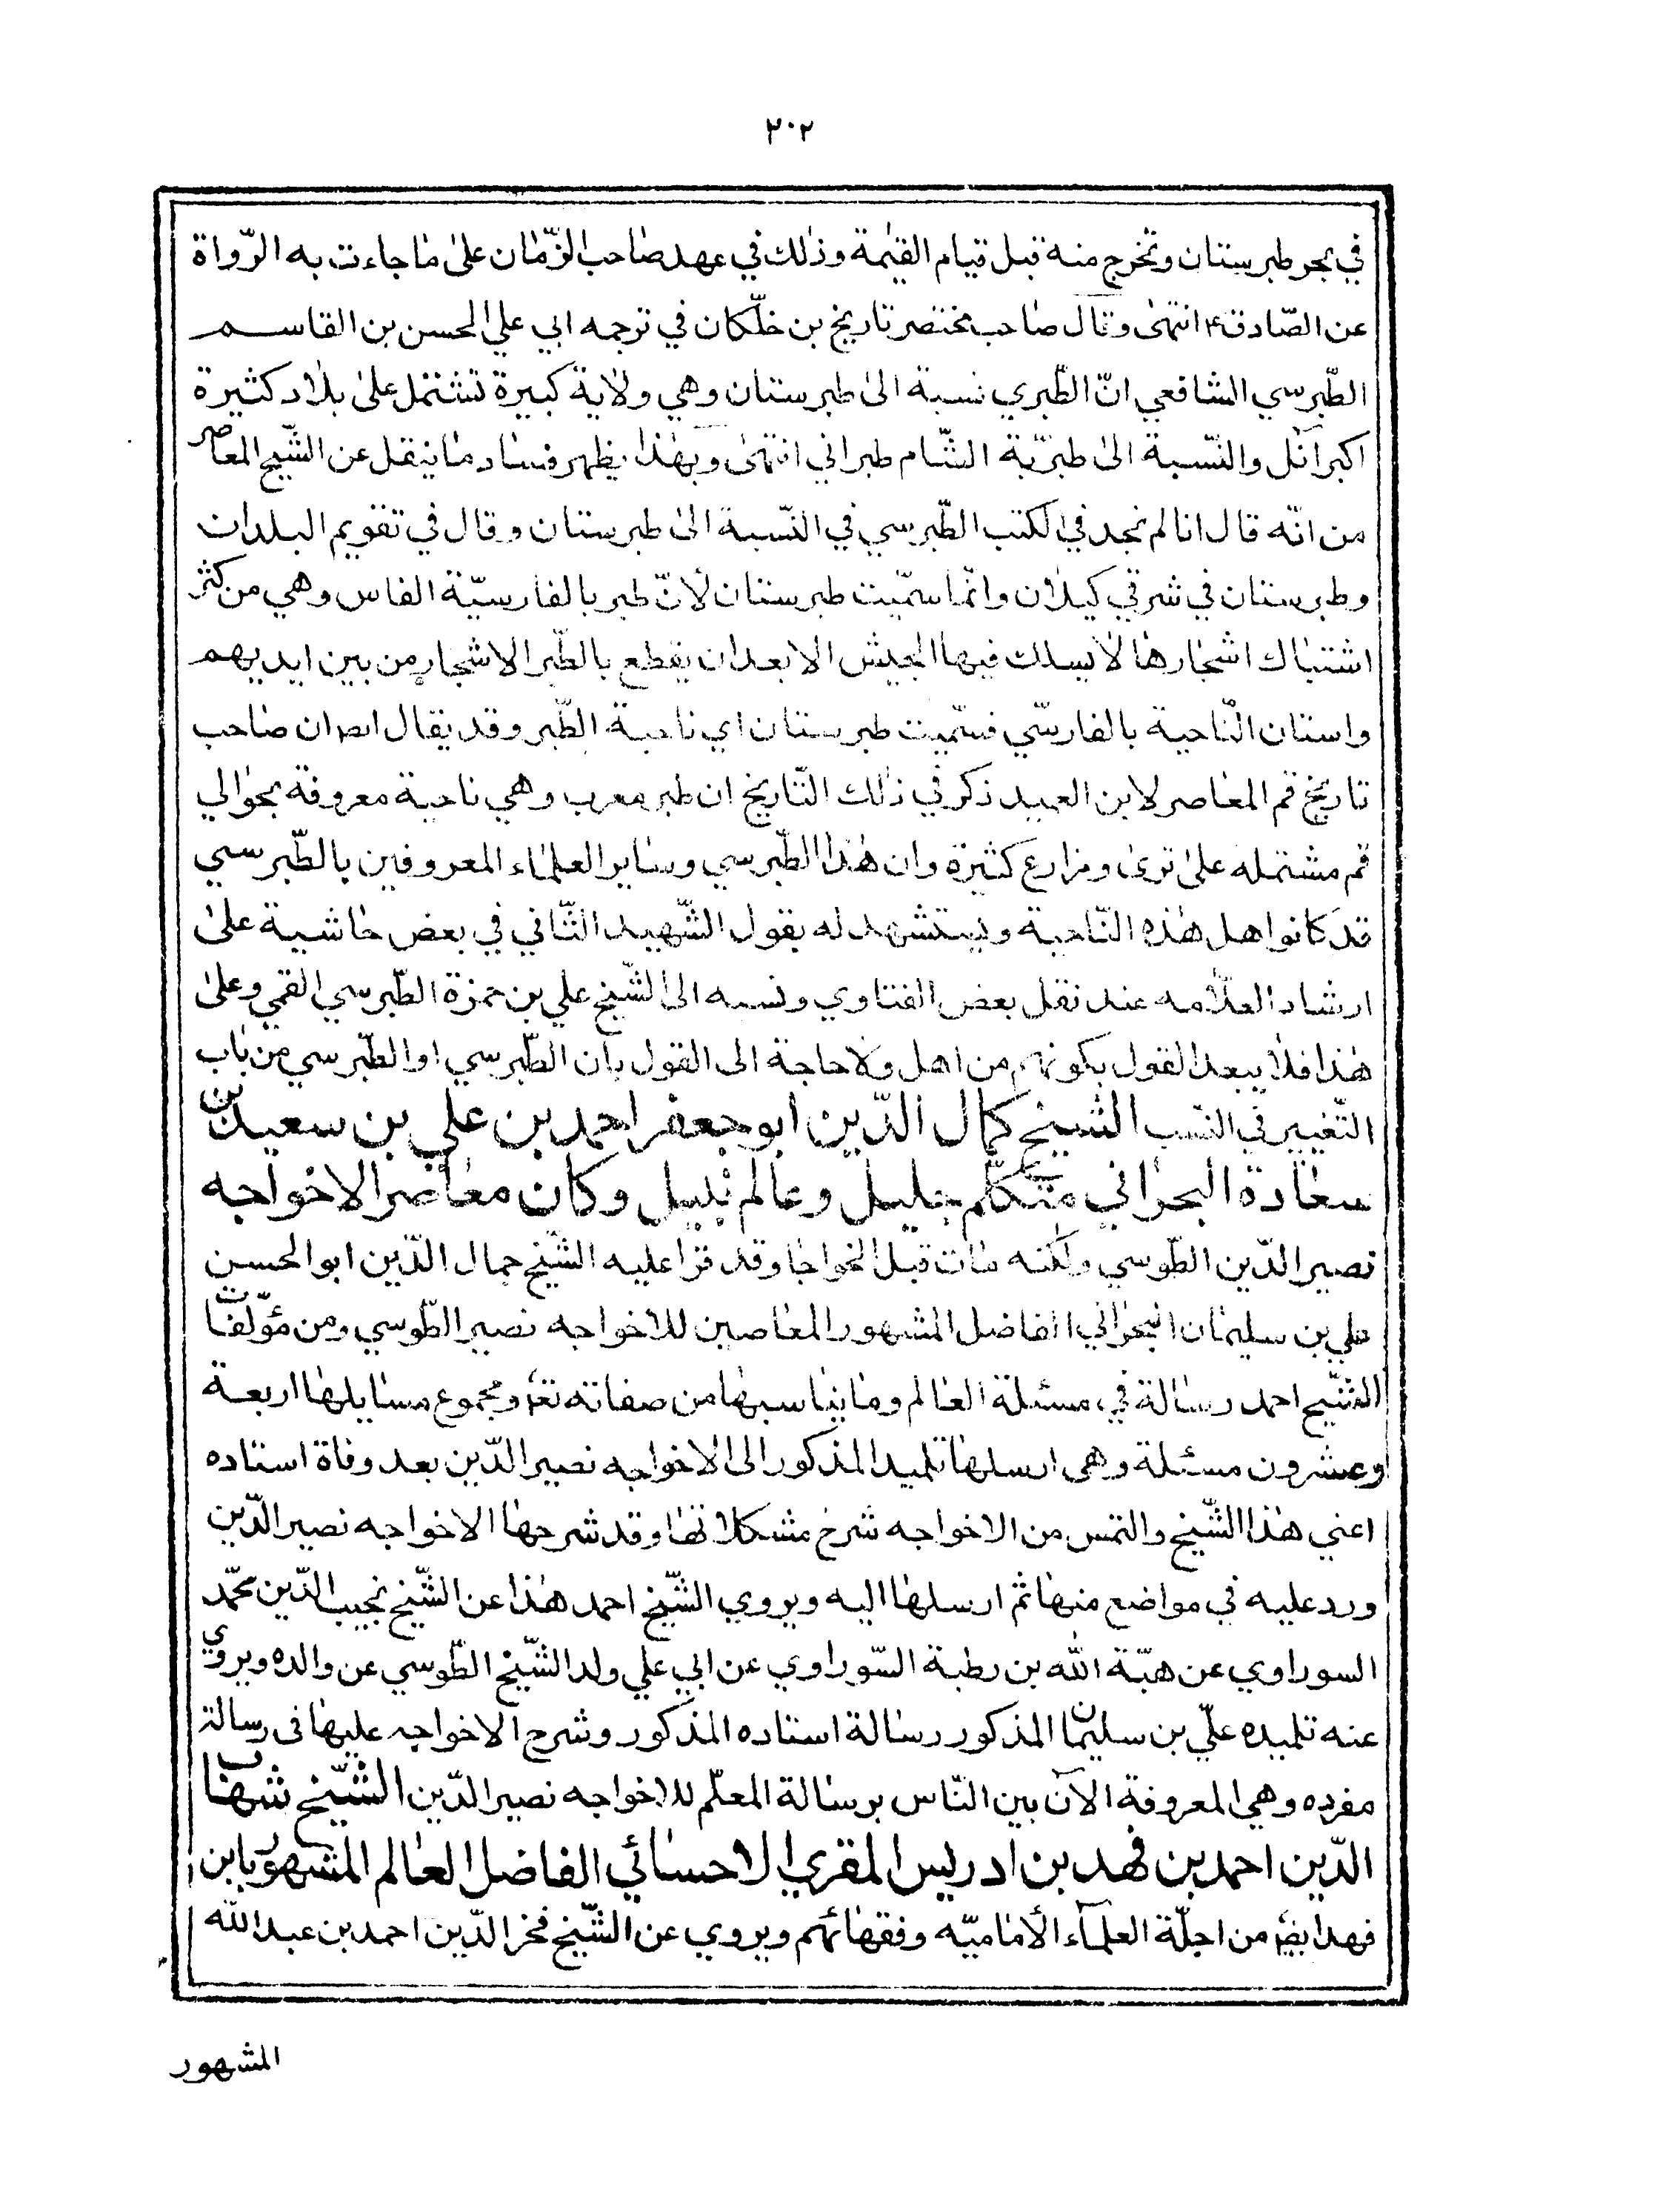 ٢٠٢
في بحر طبرستان وتخرج منه قبل قيام القيٰمة وذلك في عهد صاحب الزّمان على ما جاءت به الرّواة
عن الصّادق ع انتهى وقال صاحب مختصر تاريخ بن خلّكان في ترجمه ابي علي الحسن بن القاسم
الطّبرسي الشافعي انّ الطّبري نسبة الى طبرستان وهي ولاية كبيرة تشتمل على بلاد كثيرة
اكبر والنّسبة الى طبريّة الشّام طبراني انتهى وبهذا يظهر فساد ما ينقل عن الشّيخ المعاصر
من انّه قال انا لم نجد في الكتب الطّبرسي في النّسبة الى طبرستان وقال في تقويم البلدان
وطبرستان في شرقي كيلان وانّما سمّيت طبرستان لأنّ طبر بالفارسيّة الفاس وهي من كثر
اشتباك اشجارها لا يسلك فيها الجيش الا بعد ان يقطع بالطّبر الاشجار من بين ايديهم
واستان النّاحية بالفارسّي فسمّيت طبرستان اي ناحية الطّبر وقد يقال ايض ان صاحب
تاريخ قم المعاصر لابن العميد ذكر في ذلك التّاريخ ان طبر معرب وهي ناحية معروفة بحوالي
قم مشتمله على قرى ومزارع كثيرة وان هذا الطّبرسي وساير العلماء المعروفين بالطّبرسي
قد كانوا اهل هذه النّاحية ويستشهد له بقول الشّهيد الثّاني في بعض حاشية على
ارشاد العلّامه عند نقل بعض الفتاوي ونسبه الى الشّيخ علي بن حمزة الطّبرسي القمي وعلى
هذا فلا يبعد القول بكونهم من اهل ولا حاجة الى القول بان الطّبرسي او الطّبرسي من باب
التّغيير في النّسب الشيخ كمال الدّين ابو جعفر احمد بن علي بن سعيد بن
سعادة البحراني متكلّم جليل وعالم نبيل وكان معاصر الاخواجه
نصير الدّين الطّوسي ولكنه مات قبل الخواجا وقد قرا عليه الشّيخ جمال الدّين ابو الحسن
علي بن سليمان البحراني الفاضل المشهور المعاصين للاخواجه نصير الطّوسي ومن مؤلّفات
الشّيخ احمد رسالة في مسئلة العالم وما يناسبها من صفاته تعم ومجموع مسايلها اربعة
وعشرون مسئلة وهي ارسلها تلميد المذكور الى الاخواجه نصير الدّين بعد وفاة استاده
اعني هذا الشّيخ والتمس من الاخواجه شرخ مشكلاتها وقد شرحها الاخواجه نصير الدّين
ورد عليه في مواضع منها ثم ارسلها اليه ويروي الشّيخ احمد هذا عن الشّيخ نجيب الدّين محمّد
السوراوي عن هبّة الله بن رطبة السّوراوي عن ابي علي ولد الشّيخ الطّوسي عن والده ويروي
عنه تلميده علّي بن سليمان المذكور رسالة استاده المذكور وشرح الاخواجه عليها في رسالة
مفرده وهي المعروفة الآن بين النّاس برسالة المعلّم للاخواجه نصير الدّين الشّيخ شهاب
الدّين احمد بن فهد بن ادريس المقري الاحسائي الفاضل العالم المشهور بابن
فهد ايضم من اجلّة العلمآء الأماميّه وفقهائهم ويروي عن الشّيخ فخر الدّين احمد بن عبد الله
المشهور